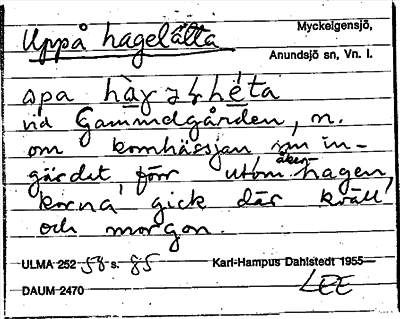 Uppå hagelätta
Myckelgensjö,
Anundsjö sn, Vn. l.
apa
vid Gammelgården, n.
om kornhässjan inn in-
gärdet, förr utom åker hagen,
korna gick där kväll
och morgon.
ULMA 252 58 s. 85
Karl-Hampus Dahlstedt 1955
DAUM 2470
LEE